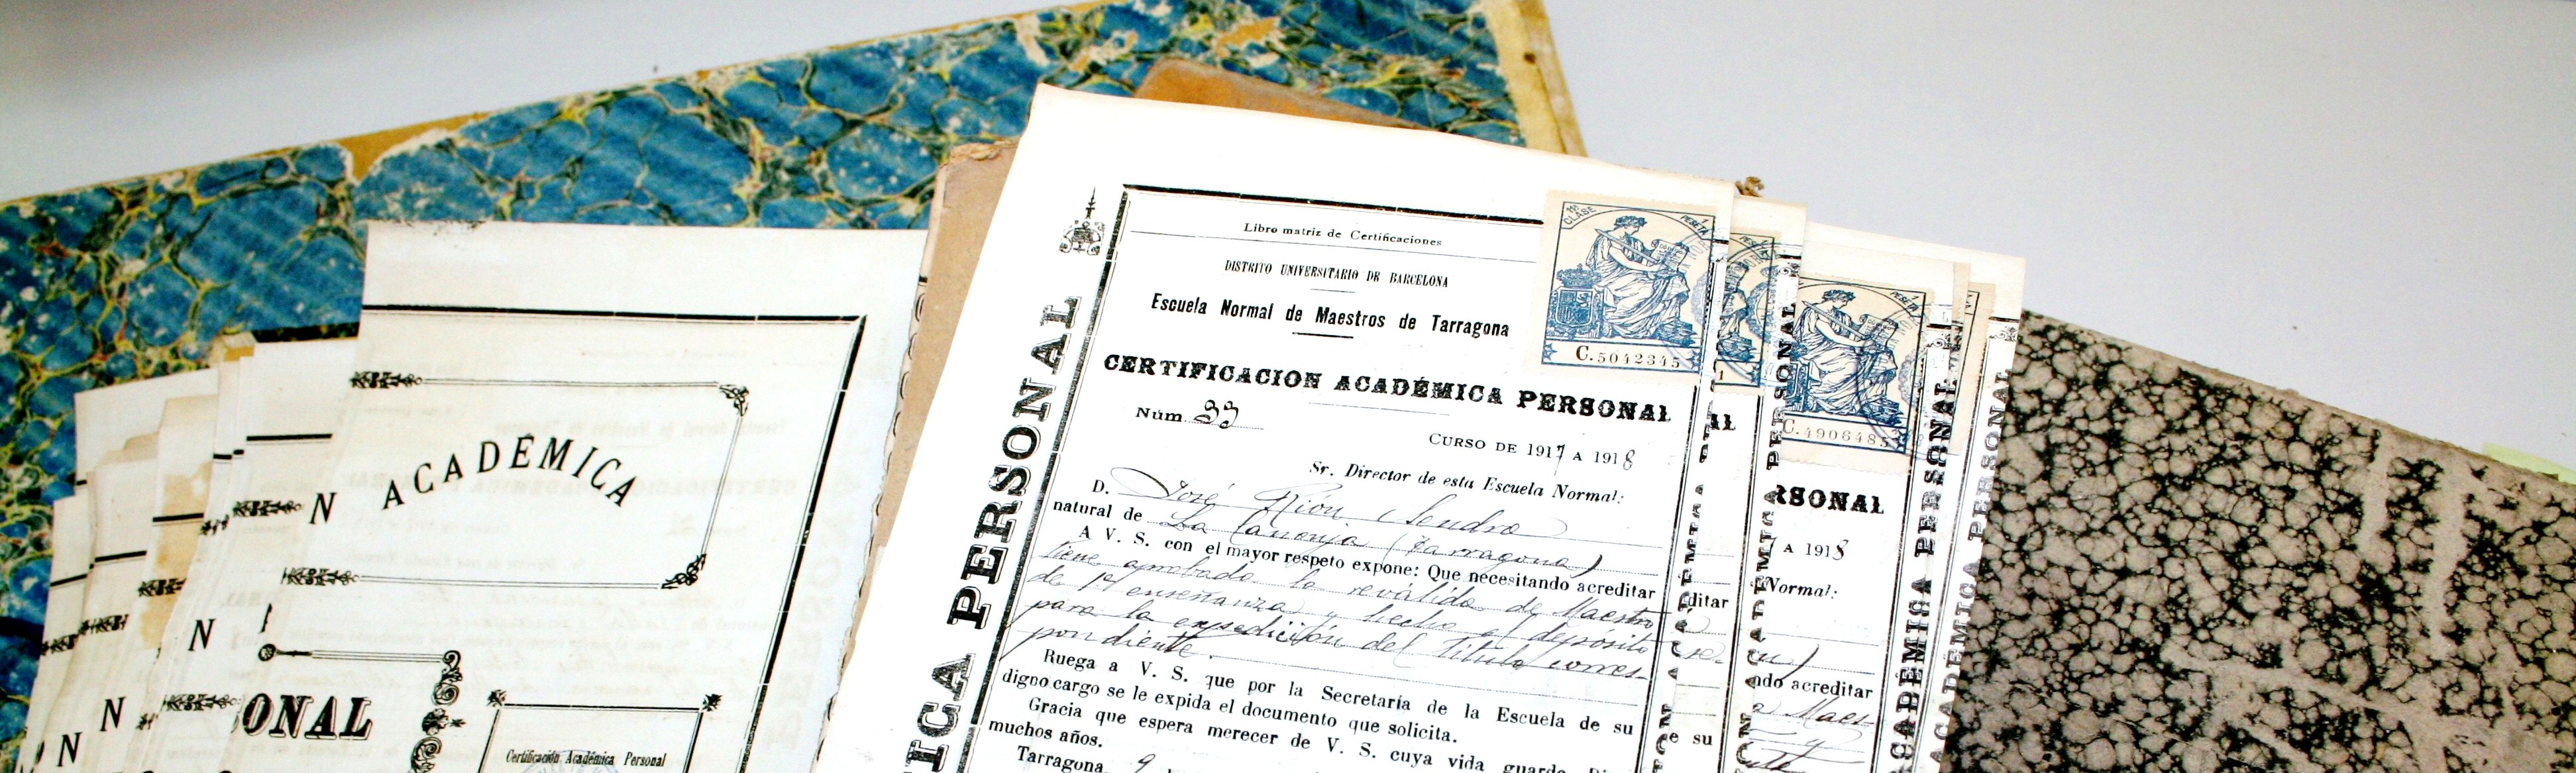 N ACADÉMICA
N
N
N
ONAL
Certificación Académica Personal
ICA PERSONAL
Libro matriz de Certificaciones
DISTRITO UNIVERSITARIO DE BARCELONA
Escuela Normal de Maestros de Tarragona
11ª CLASE
1 PESETA
C.5042345
CERTIFICACION ACADÉMICA PERSONAL
Núm. 33
CURSO DE 1917 A 1918
Sr. Director de esta Escuela Normal:
D. José Rión Sendra
natural de La Canonja (Tarragona)
A V. S. con el mayor respeto expone: Que necesitando acreditar
tiene aprobado la reválida de Maestro
de 1ª enseñanza y hecho el depósito
para la expedición del título corres-
pondiente.
Ruega a V. S. que por la Secretaría de la Escuela de su
digno cargo se le expida el documento que solicita.
Gracia que espera merecer de V. S. cuya vida guarde
muchos años.
Tarragona 9
AL
ditar
e su
PERSONAL
PESETA
C.4906485
RSONAL
A 1918
Normal:
ndo acreditar
a Maes-
ACADÉMICA PERSONAL
ACADÉMICA PERSONAL